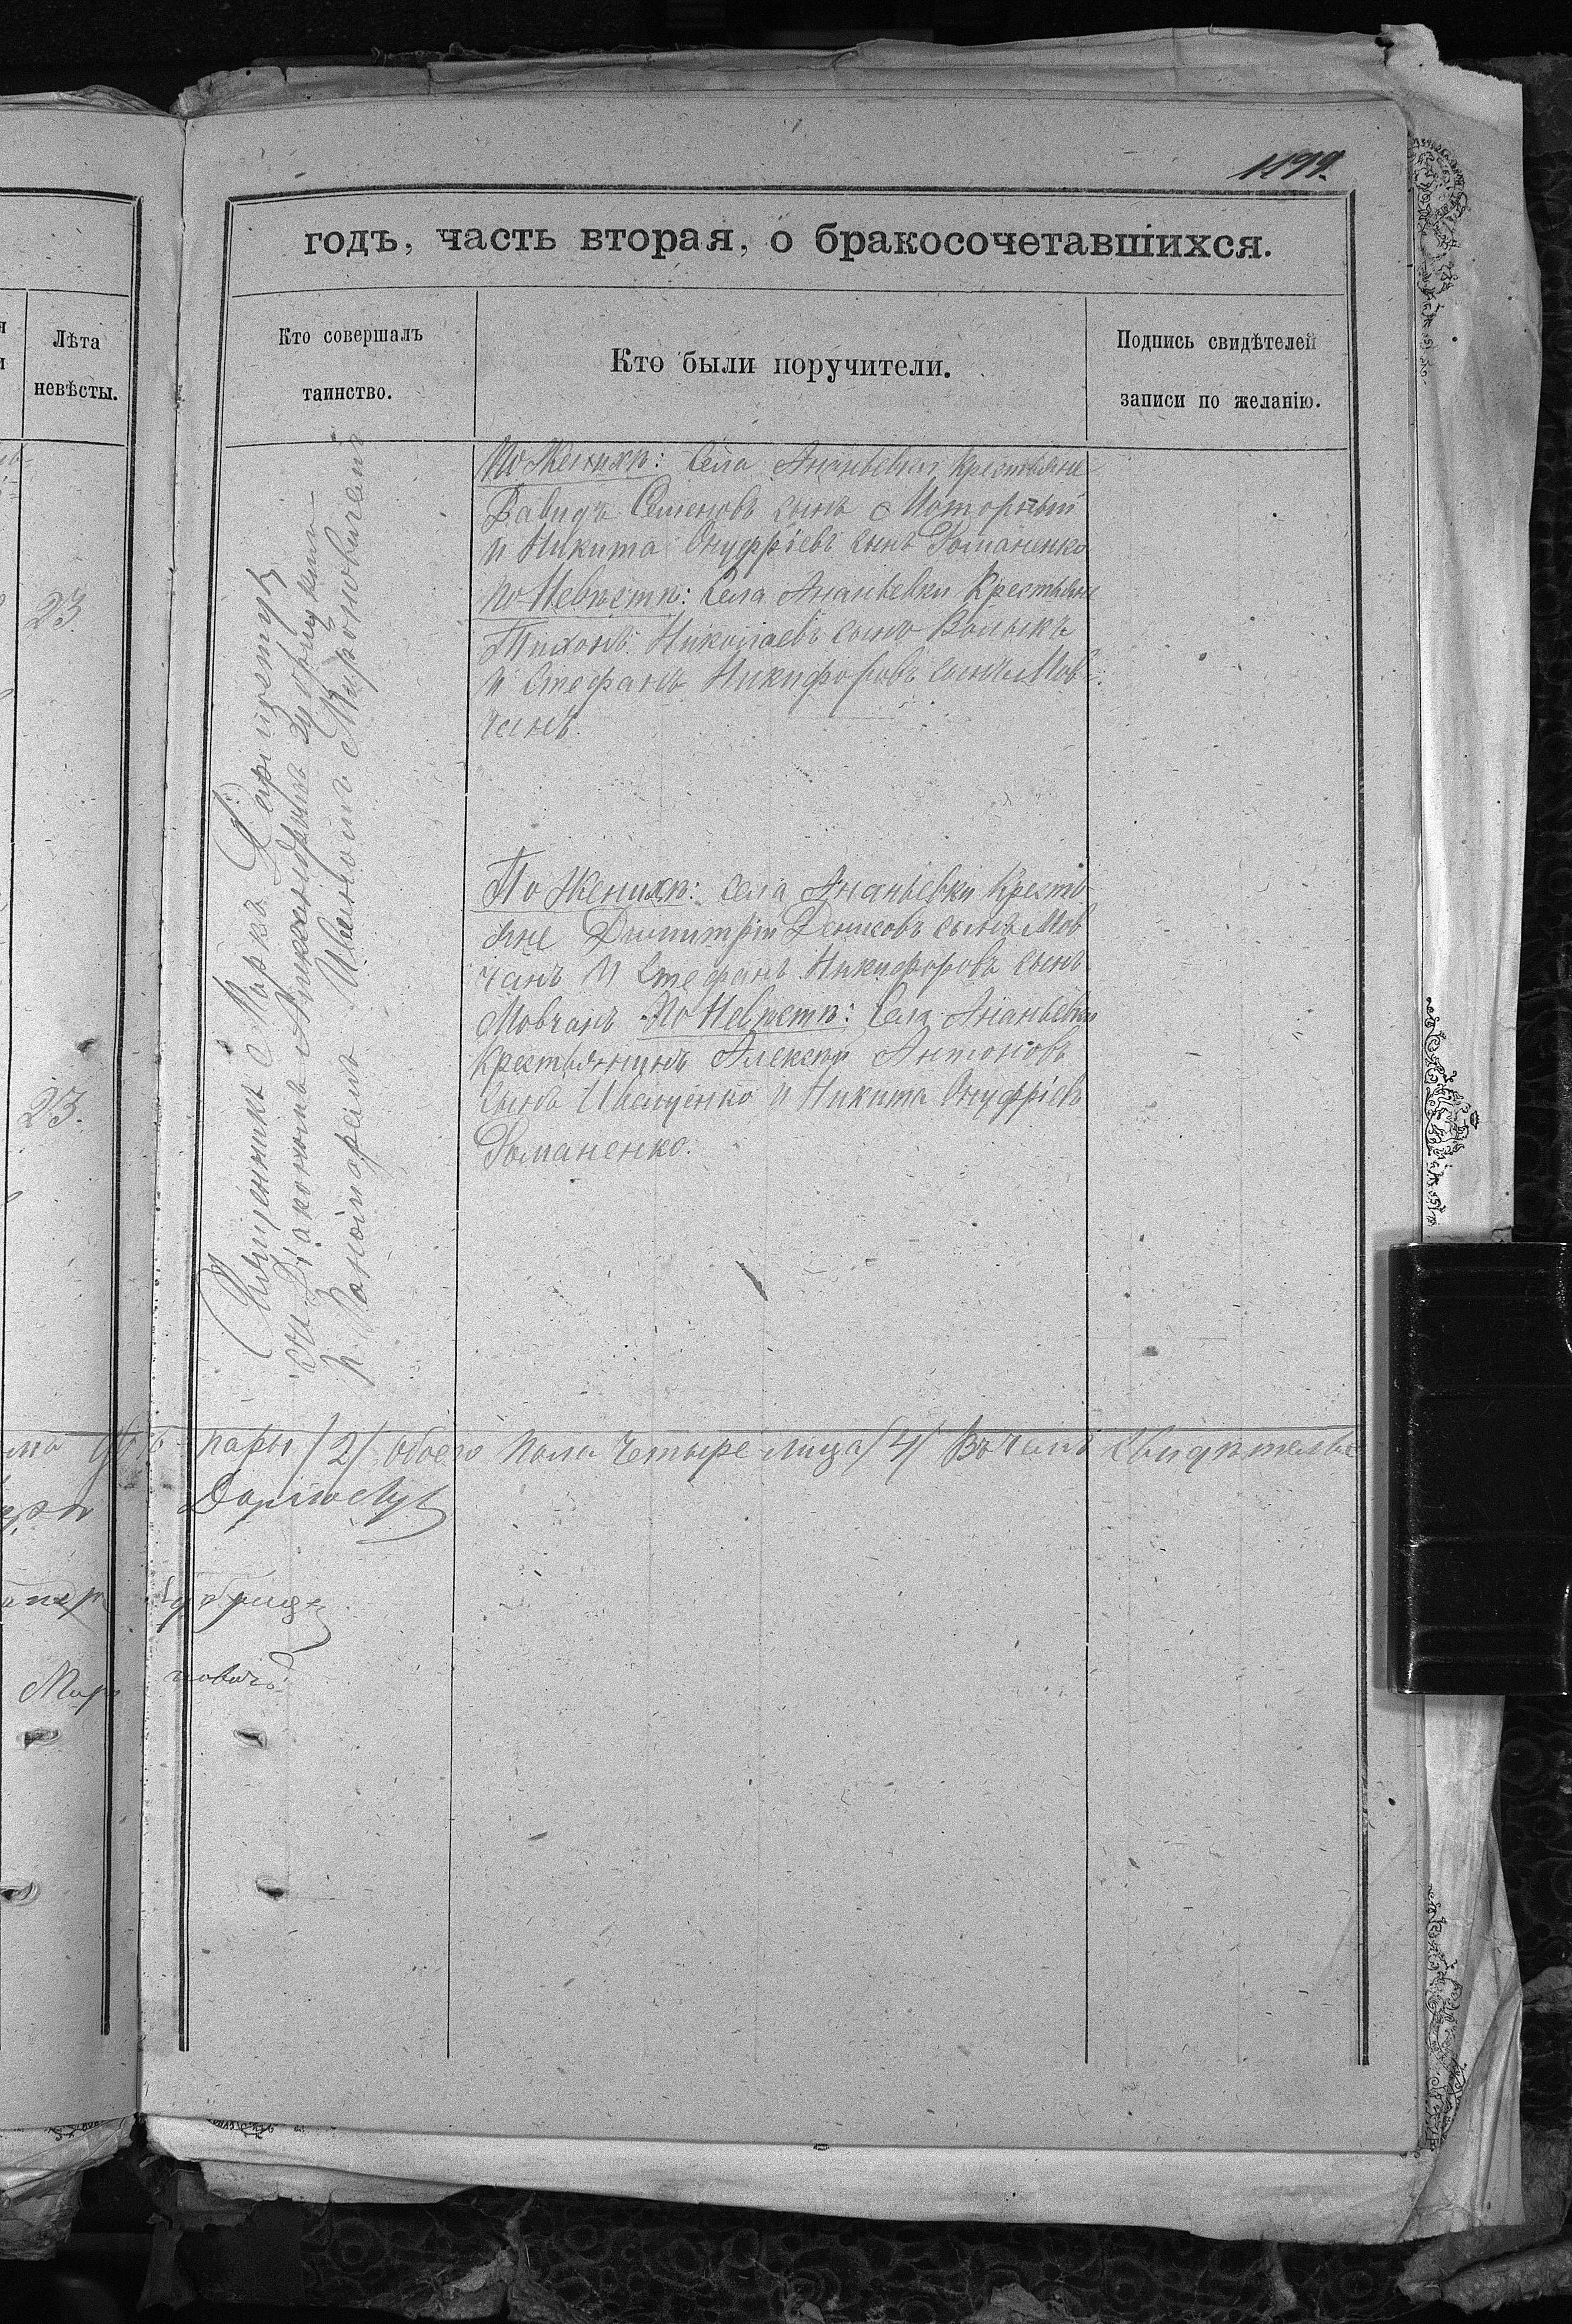 1199.
годъ, часть вторая, о бракосочетавшихся.
Лѣта
невѣсты.
Кто совершалъ
таинство.
Кто были поручители.
Подпись свидѣтелей
записи по желанію.
23
23.
Священникъ Марко
съ Діакономъ Александромъ
и Пономаремъ Иваномъ Мироновичемъ
По Женихѣ: Села Ананьевки Крестьяне
Давидъ Семеновъ сынъ Моторный
и Никита Онуфріевъ сынъ Романенко
по Невѣстѣ: Села Ананьевки Крестьяне
Тихонъ Николаевъ сынъ
и Стефанъ Никифоровъ сынъ Мов
чанъ.
По Женихѣ: села Ананьевки Кресть
яне Димитрій Денисовъ сынъ Мов
чанъ и Стефанъ Никифоровъ сынъ
Мовчанъ По Невѣстѣ: Села Ананьевки
Крестьянинъ Алексѣй Антоновъ
сынъ Иващенко и Никита Онуфріевъ
Романенко.
пары /2/ обоего пола четыре лица /4/ Въ чемъ свидѣтельс
Миро новичъ